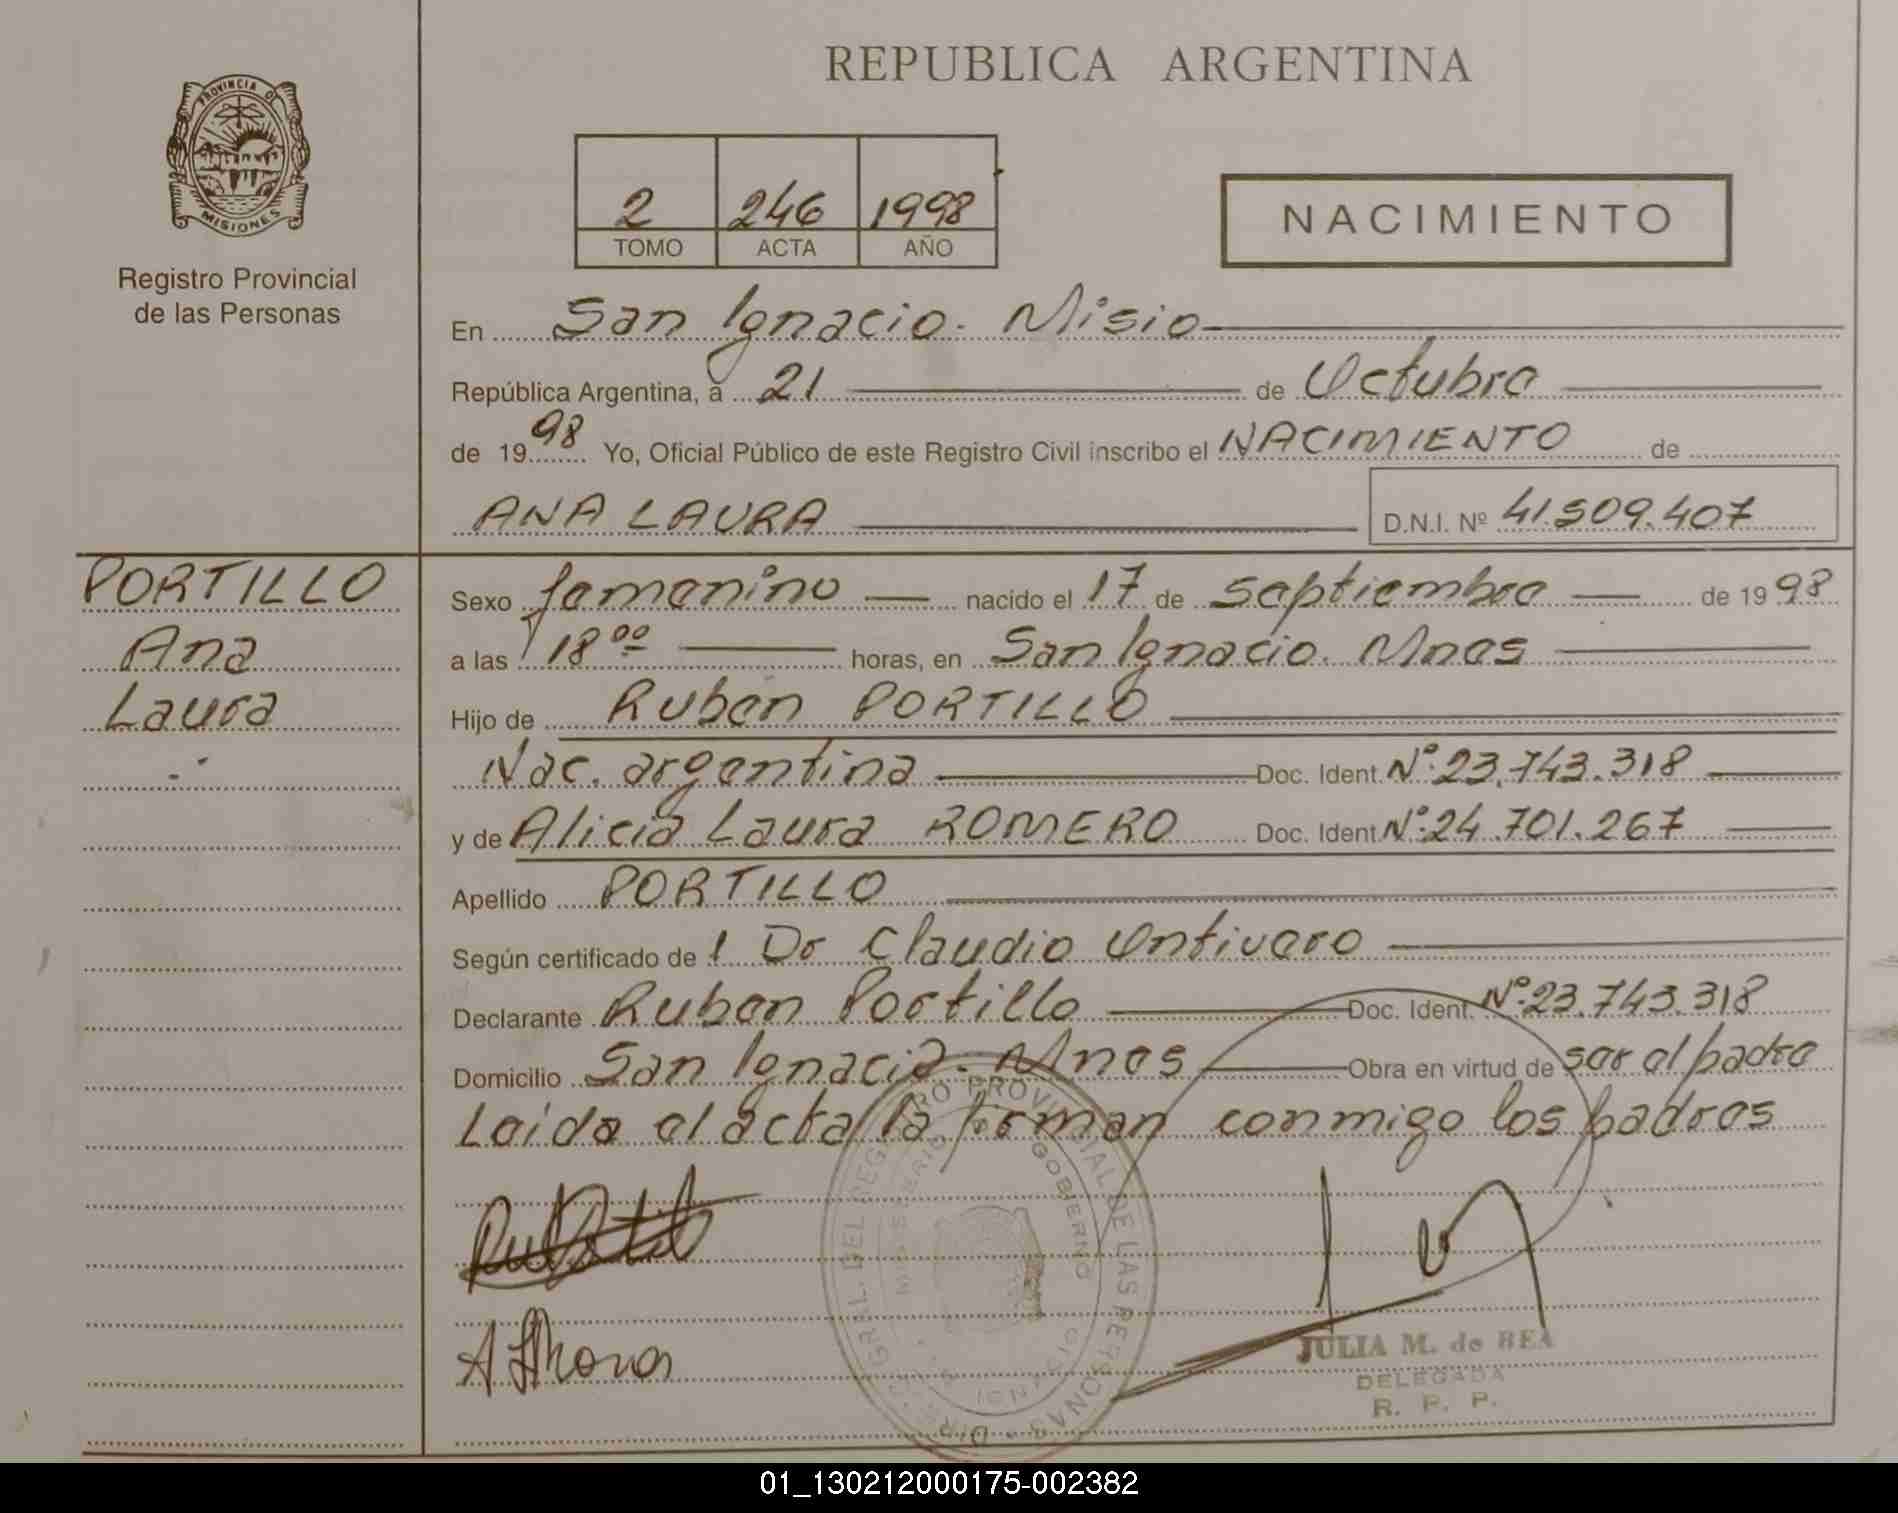 REPUBLICA ARGENTINA
PROVINCIA DE
MISIONES
Registro Provincial
de las Personas
2 246 1998
TOMO ACTA AÑO
NACIMIENTO
En San Ignacio. Misio
República Argentina, a 21 de Octubre
de 1998 Yo, Oficial Público de este Registro Civil inscribo el NACIMIENTO de
ANA LAURA
D.N.I. Nº 41.509.407
PORTILLO
Ana
Laura
Sexo femenino nacido el 17 de septiembre de 1998
a las 18 00 horas, en San Ignacio. Mnes
Hijo de Ruben PORTILLO
Nac. argentina Doc. Ident. Nº 23.743.318
y de Alicia Laura ROMERO Doc. Ident. Nº 24.701.267
Apellido PORTILLO
Según certificado de l Dr Claudio Ontivero
Declarante Ruben Portillo Doc. Ident. Nº 23.743.318
Domicilio San Ignacio. Mnes Obra en virtud de ser el padre
Leída el acta la firman conmigo los padres
JULIA M. de BEA
DELEGADA
R. P. P.
01_130212000175-002382